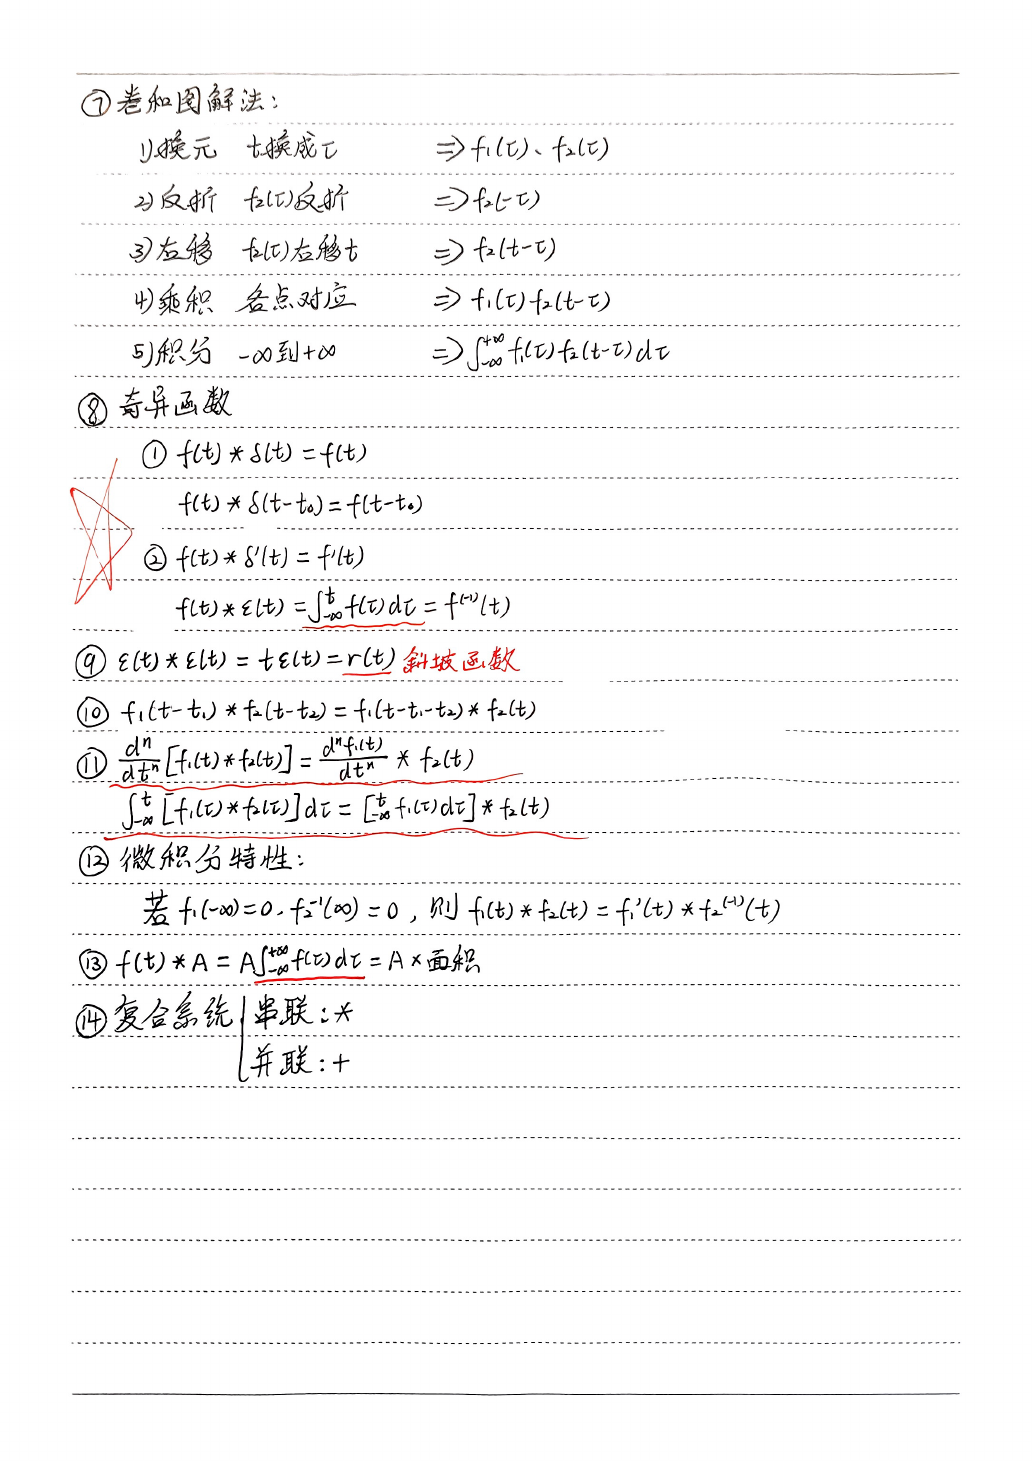 ⑦ 卷和图解法:
1) 换元 t换成τ ⇒ f₁(τ)、f₂(τ)
2) 反折 f₂(τ)反折 ⇒ f₂(-τ)
3) 右移 f₂(τ)右移t ⇒ f₂(t-τ)
4) 乘积 各点对应 ⇒ f₁(τ)f₂(t-τ)
5) 积分 -∞到+∞ ⇒ ∫_{-∞}^{+∞} f₁(τ)f₂(t-τ)dτ
⑧ 奇异函数
① f(t)*δ(t)=f(t)
f(t)*δ(t-t₀)=f(t-t₀)
② f(t)*δ'(t)=f'(t)
f(t)*ε(t)=∫_{-∞}^{t} f(τ)dτ=f⁽⁻¹⁾(t)
⑨ ε(t)*ε(t)=tε(t)=r(t) 斜坡函数
⑩ f₁(t-t₁)*f₂(t-t₂)=f₁(t-t₁-t₂)*f₂(t)
⑪ dⁿ/dtⁿ[f₁(t)*f₂(t)]=dⁿf₁(t)/dtⁿ * f₂(t)
∫_{-∞}^{t}[f₁(τ)*f₂(τ)]dτ=[_{-∞}^{t}f₁(τ)dτ]*f₂(t)
⑫ 微积分特性:
若 f₁(-∞)=0、f₂⁻¹(∞)=0, 则 f₁(t)*f₂(t)=f₁'(t)*f₂⁽⁻¹⁾(t)
⑬ f(t)*A=A∫_{-∞}^{+∞}f(τ)dτ=A×面积
⑭ 复合系统 串联:*
并联:+